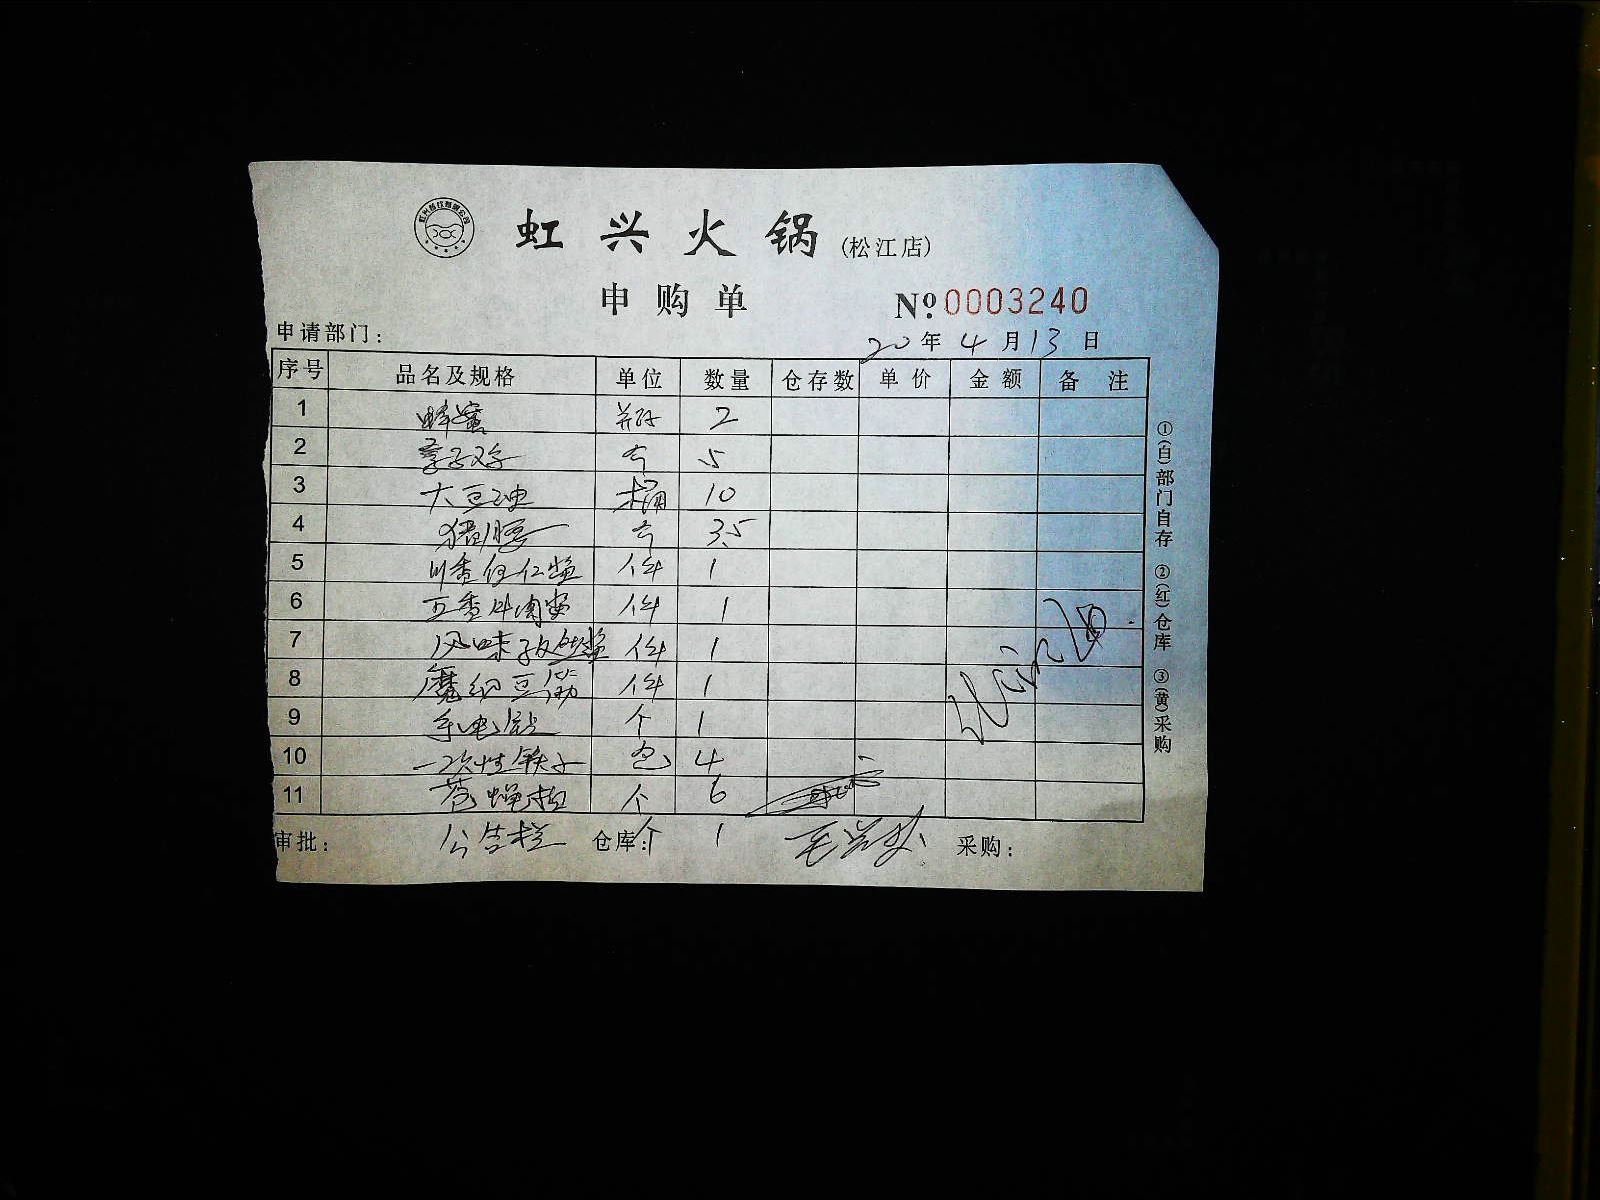 虹兴火锅(松江店)
申购单 No.0003240
申请部门: 20年4月13日
序号 品名及规格 单位 数量 仓存数 单价 金额 备注
1 蜂蜜 瓶 2
2 5
3 大豆油 桶 10
4 猪腰 3.5
5 件 1
6 五香牛肉酱 件 1
7 风味 件 1
8 魔纳豆筋 件 1
9 手电 个 1
10 一次性筷子 包 4
11 苍蝇拍 个 6
审批: 公告栏 仓库: 个 1 采购:
①(白)部门自存 ②(红)仓库 ③(黄)采购